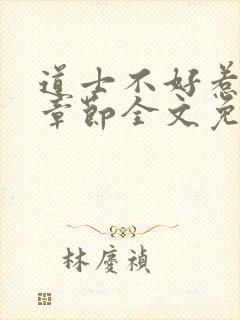 道士不好惹
章節全文免
林慶禎